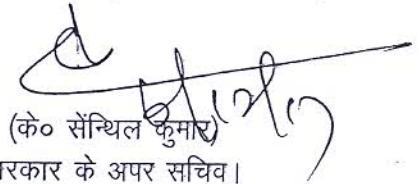 (के० सेंन्थिल कुमार)
रकार के अपर सचिव।